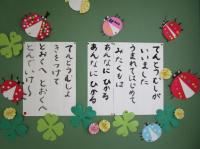 てんとうむしが
いいました
うまれてはじめて
みたくもは
あんなにひかる
あんなにひかる
てんとうむしよ
きをつけて
とおくへとおくへ
とんでいけ〜